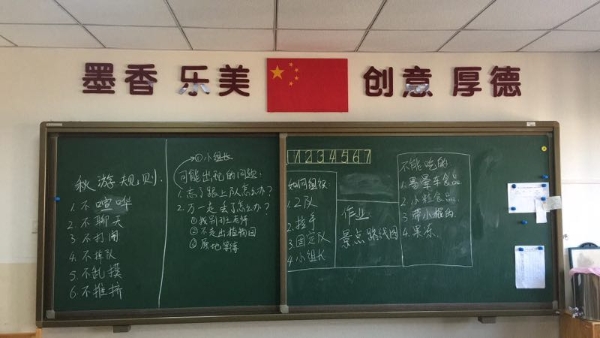 墨香 乐美 创意 厚德
秋游规则:
1.不喧哗
2.不聊天
3.不打闹
4.不掉队
5.不乱摸
6.不推挤
①小组长
可能出现的问题:
1.忘了跟上队怎么办?
2.万一走丢了怎么办?
①找别班老师
②不走出植物园
③原地等待
1 2 3 4 5 6 7
如何组织
1.2队
2.拉手
3.固定队
4.小组长
作业
景点路线图
不能吃的
1.膨化食品
3.带小棍的
4.果冻